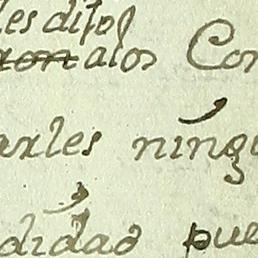 les dijo
ron alos Con
arles ningu
didad pue